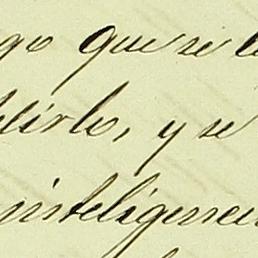 go que se le
blirlo, y se
inteligencia